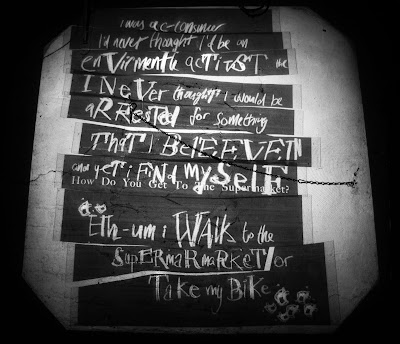 i was a consumer
I'd never thought I'd be an
enVirmentle actiVST the
I NeVer thought I would be
aRRested for something
THaT I BeLEEVE IN
and yet i Find mySelf
How Do You Get To The Supermarket?
Eth-um i WaLK to the
SupERmaRmaRKET/or
Take my BiKe